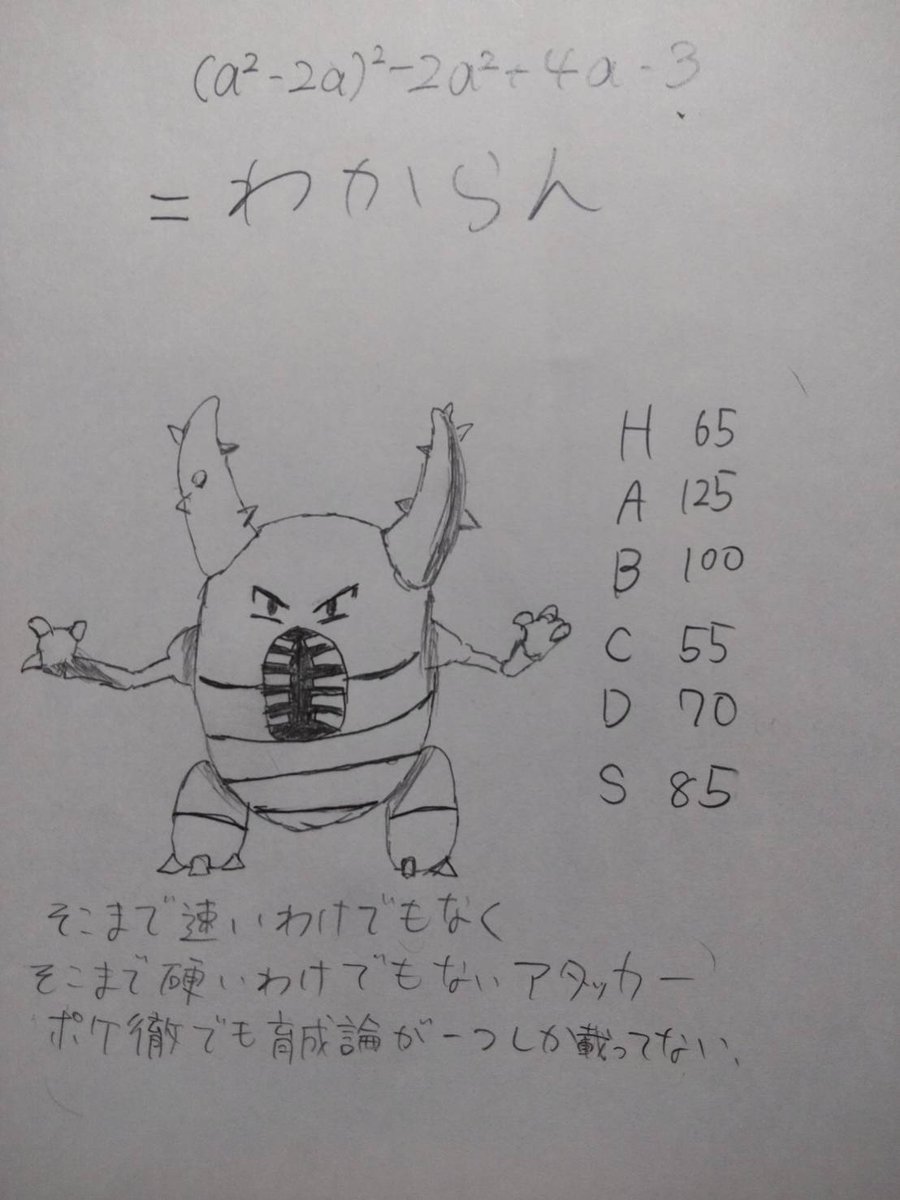 (a²-2a)²-2a²+4a-3
=わからん
H 65
A 125
B 100
C 55
D 70
S 85
そこまで速いわけでもなく
そこまで硬いわけでもないアタッカー
ポケ徹でも育成論が一つしか載ってない、